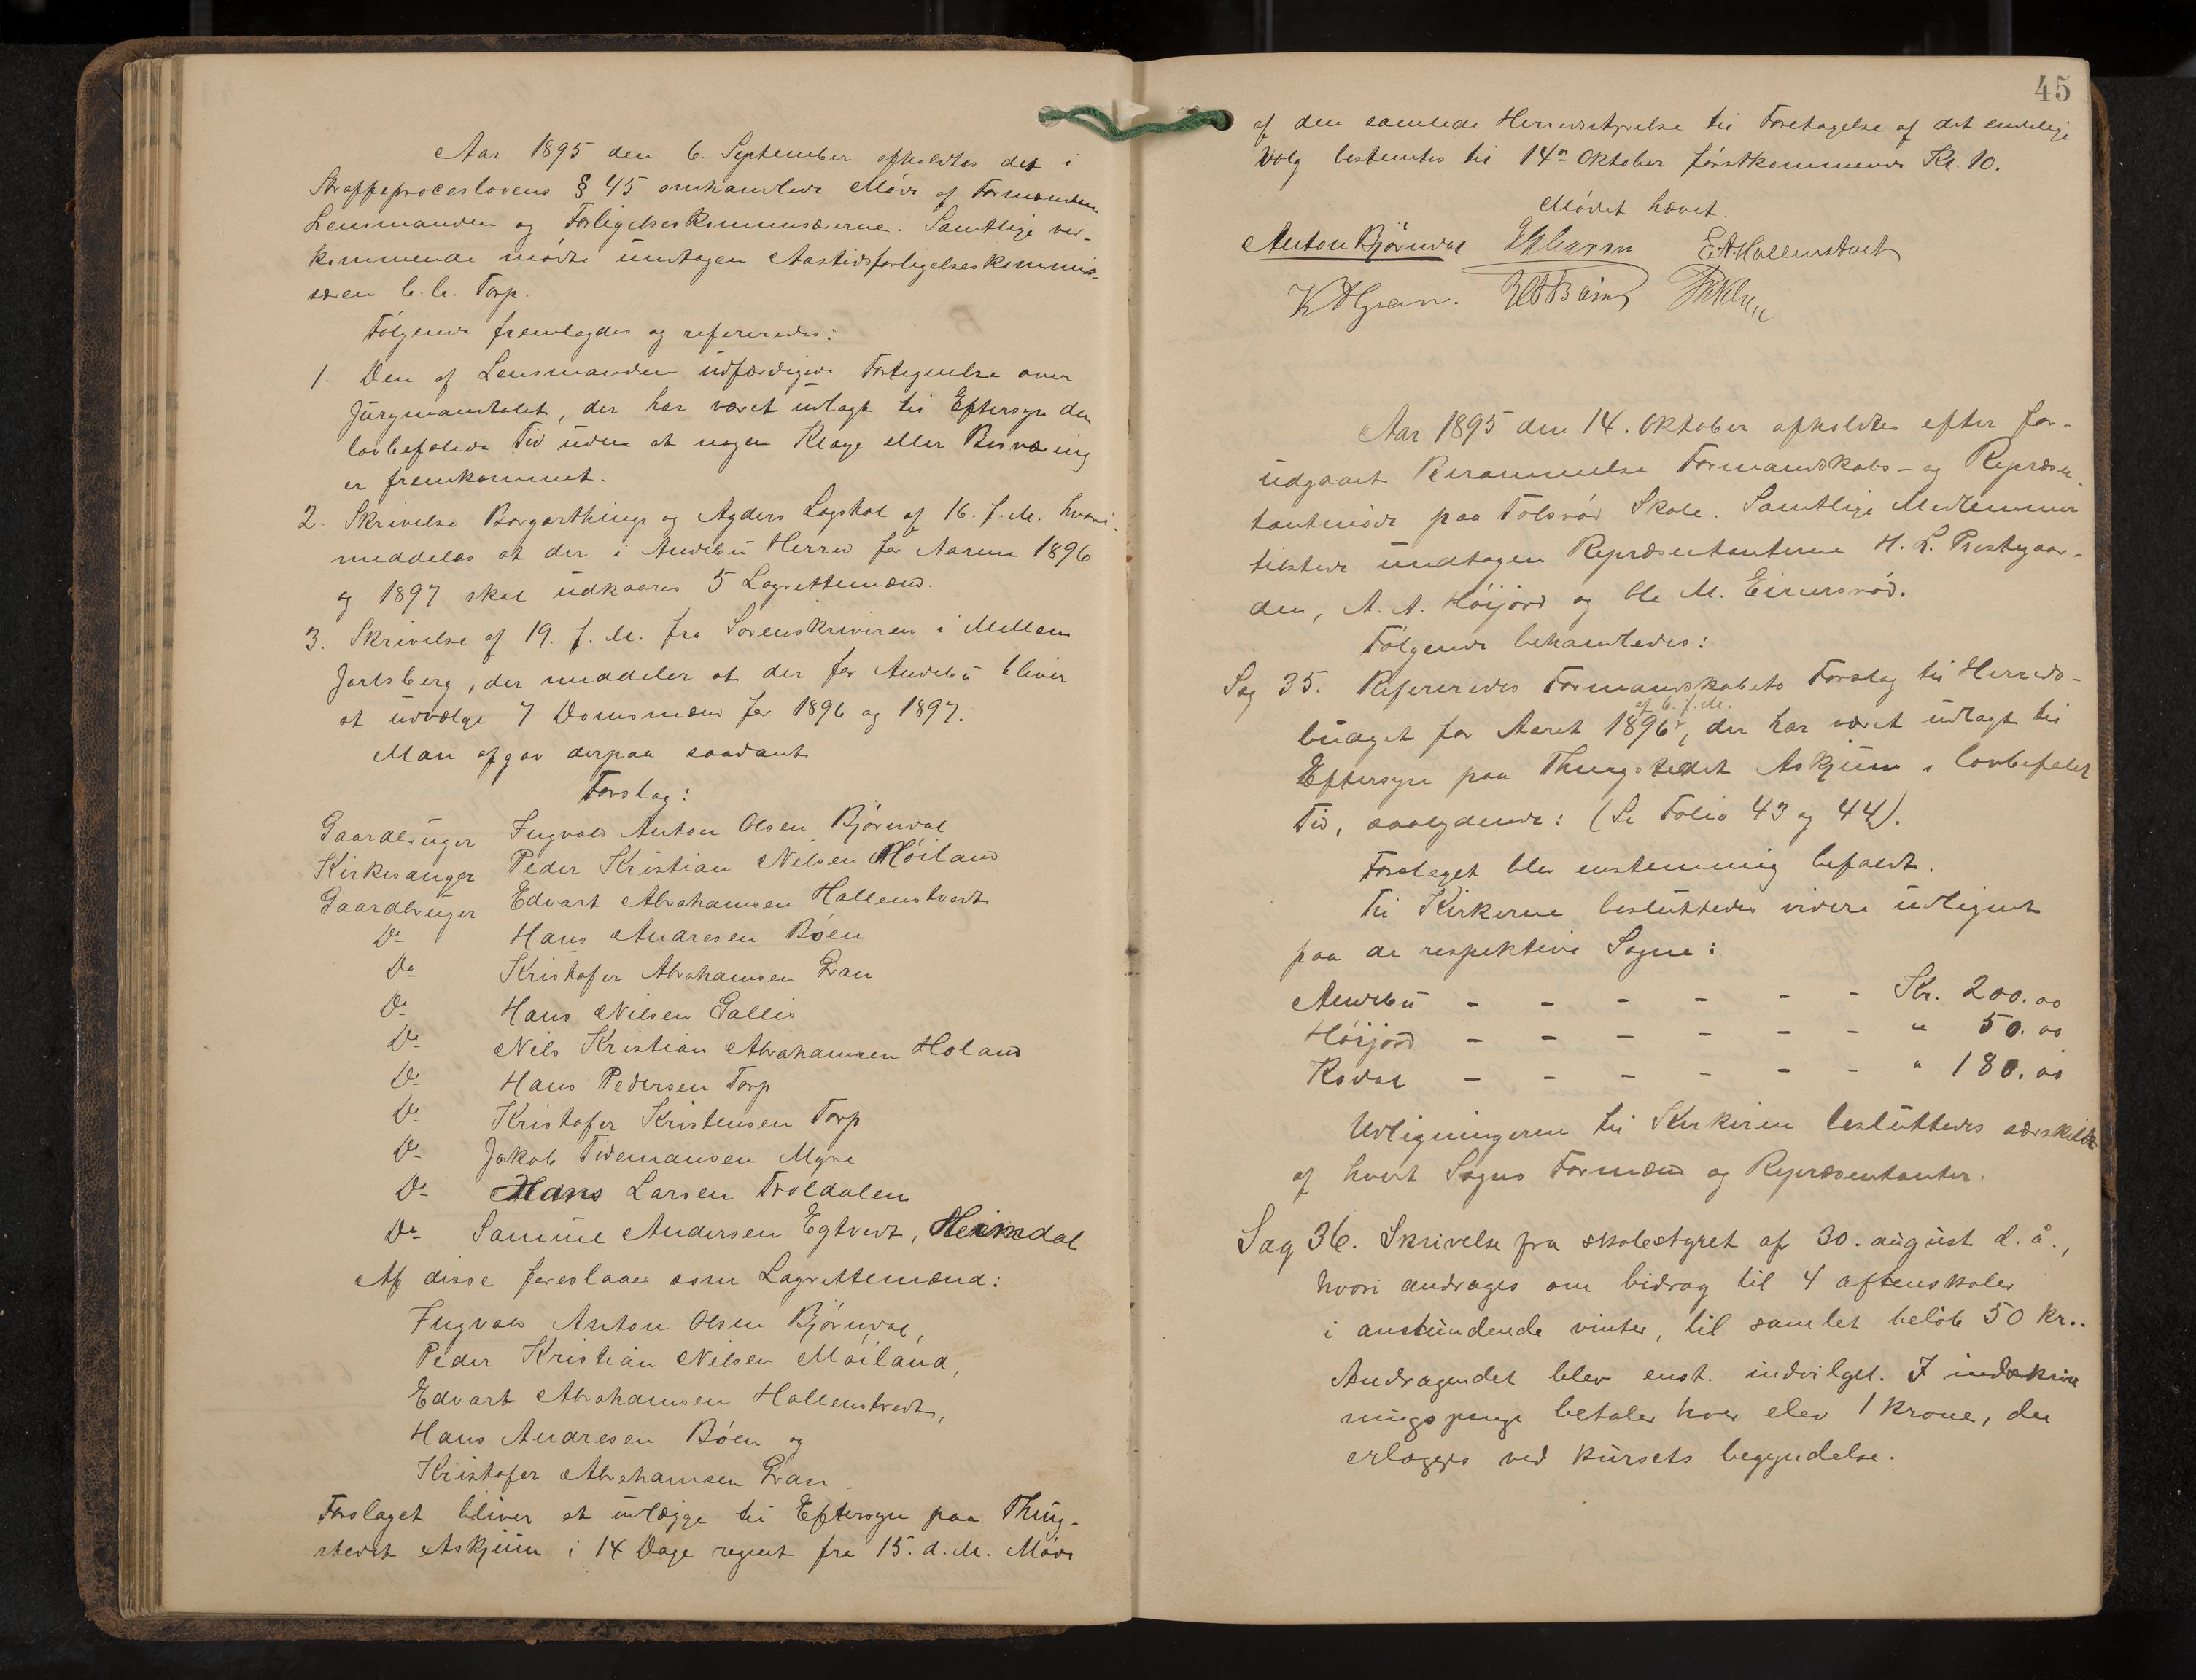 Aar 1895 den 6. September afholdtes det i
Straffeproceslovens § 45 omhandlede Møde af Formænden
Lensmanden og Forligelseskommisærerne. Samtlige ved-
kommende mødte undtagen Aastedsforligelseskommis-
særen C. C. Torp.
Følgende fremlagdes og refereredes:
1. Den af Lensmanden udfærdigede Fortegnelse over
Jurymandtalet, der har været udlagt til Eftersyn den
lovbefalede Tid uden at nogen Klage eller Besværing
er fremkommet.
2. Skrivelse Borgarthings og Agders Lagstol af 16. f. M. hvori
meddeles at der i Andebu Herred for Aarene 1896
og 1897 skal udkaares 5 Lagrettemænd.
3. Skrivelse af 19. f. M. fra Sorenskriveren i Mellem
Jarlsberg, der meddeler at der for Andebu bliver
at udvælge 7 Domsmænd for 1896 og 1897.
Man afgav derpaa saadant
Forslag:
Gaardbruger Ingvald Anton Olsen Bjørndal
Kirkesanger Peder Kristian Nilsen Møiland
Gaardbruger Edvart Abrahamsen Hallenstvedt
Do Hans Andresen Bøen
Do Kristofer Abrahamsen Gran
Do Hans Nilsen Gallis
Do Nils Kristian Abrahamsen Holand
Do Hans Pedersen Torp
Do Kristofer Kristensen Torp
Do Jakob Tidemansen Myre
Do Hans Larsen Troldalen
Do Samuel Andersen Egtvedt, Heimdal
Af disse foreslaaes som Lagrettemænd:
Ingvald Anton Olsen Bjørndal,
Peder Kristian Nilsen Møiland,
Edvart Abrahamsen Hallenstvedt,
Hans Andresen Bøen og
Kristofer Abrahamsen Gran
Forslaget bliver at udlægge til Eftersyn paa Thing-
stedet Askjum i 14 Dage regnet fra 15. d. M. Møde
45
af den samlede Herredsstyrelse til Foretagelse af det endelige
Valg bestemtes til 14de Oktober førstkommende Kl. 10.
Mødet hævet.
Anton Bjørndal E. A. Hallenstvedt
K A Gran. H A Bøen
Aar 1895 den 14. Oktober afholdtes efter for-
udgaaet Berammelse Formandskabs- og Repræsen-
tantmøde paa Tolsrød Skole. Samtlige Medlemmer
tilstede undtagen Repræsentanterne H. L. Prestegaar-
den, A. A. Høijord og Ole M. Einersrød.
Følgende behandledes:
Sag 35. Refereredes Formandskabets Forslag til Herreds-
af 6. f. M.
budget for Aaret 1896, der har været udlagt til
Eftersyn paa Thingstedet Askjum i lovbefalet
Tid, saalydende: (Se Folio 43 og 44).
Forslaget blev enstemmig bifaldt.
Til Kirkerne besluttedes videre udlignet
paa de respektive Sogne:
Andebu - - - - - - Kr. 200.00
Høijord - - - - - - " 50.00
Kodal - - - - - - " 180.00
Udligningerne til Kirkerne besluttedes særskildt
af hvert Sogns Formænd og Repræsentanter.
Sag 36. Skrivelse fra skolestyret af 30. august d. å.,
hvori andrages om bidrag til 4 aftenskoler
i anstundende vinter, til samlet beløb 50 kr..
Andragendet blev enst. indvilget. I indskriv
ningspenge betaler hver elev 1 krone, der
erlægges ved kursets begyndelse.